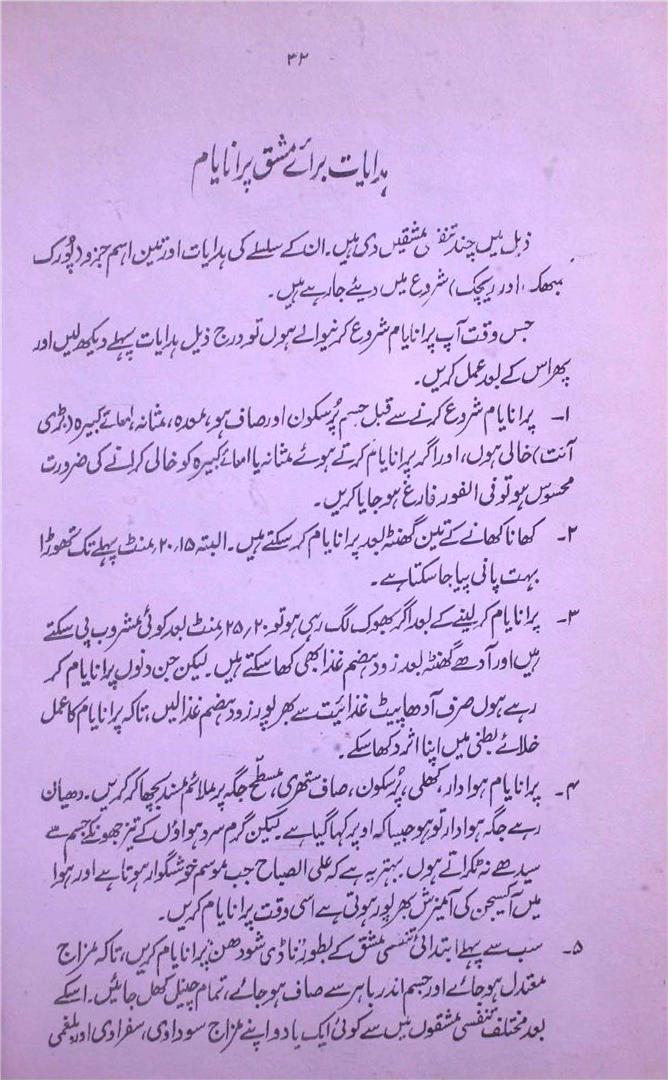 ۳۲
ہدایات برائے مشق پرانایام
ذیل میں چند تنفسی مشقیں دی ہیں۔ ان کے سلسلے کی ہدایات اور تین اہم جزو (پُورک
کمبھک، اور ریچک) شروع میں دیئے جا رہے ہیں۔
جس وقت آپ پرانایام شروع کرنیوالے ہوں تو درج ذیل ہدایات پہلے دیکھ لیں اور
پھر اس کے بعد عمل کریں۔
۱۔ پرانایام شروع کرنے سے قبل جسم پُرسکون اور صاف ہو، معدہ، مثانہ، امعائے کبیرہ (بڑی
آنت) خالی ہوں، اور اگر پرانایام کرتے ہوئے مثانہ یا امعائے کبیرہ کو خالی کرانے کی ضرورت
محسوس ہو تو فی الفور فارغ ہو جایا کریں۔
۲۔ کھانا کھانے کے تین گھنٹہ بعد پرانایام کر سکتے ہیں۔ البتہ ۱۵، ۲۰ منٹ پہلے تک تھوڑا
بہت پانی پیا جا سکتا ہے۔
۳۔ پرانایام کر لینے کے بعد اگر بھوک لگ رہی ہو تو ۲۰، ۲۵ منٹ بعد کوئی مشروب پی سکتے
ہیں اور آدھے گھنٹہ بعد زود ہضم غذا بھی کھا سکتے ہیں۔ لیکن جن دنوں پرانایام کر
رہے ہوں صرف آدھا پیٹ غذائیت سے بھرپور زود ہضم غذا لیں، تاکہ پرانایام کا عمل
خلائے بطنی میں اپنا اثر دکھا سکے۔
۴۔ پرانایام ہوادار، کھلی، پُرسکون، صاف ستھری، مسطّح جگہ پر ملائم مسند بچھا کر کریں۔ دھیان
رہے جگہ ہوادار تو ہو جیسا کہ اوپر کہا گیا ہے۔ لیکن گرم سرد ہواؤں کے تیز جھونکے جسم سے
سیدھے نہ ٹکراتے ہوں۔ بہتر یہ ہے کہ علی الصباح جب موسم خوشگوار ہوتا ہے اور ہوا
میں آکسیجن کی آمیزش بھرپور ہوتی ہے اسی وقت پرانایام کریں۔
۵۔ سب سے پہلے ابتدائی تنفسی مشق کے بطور ناڈی شودھن پرانایام کریں، تاکہ مزاج
معتدل ہو جائے اور جسم اندر باہر سے صاف ہو جائے، تمام چینل کھل جائیں۔ اسکے
بعد مختلف تنفسی مشقوں میں سے کوئی ایک یا دو اپنے مزاج سوداوی، سفرادی اور بلغمی